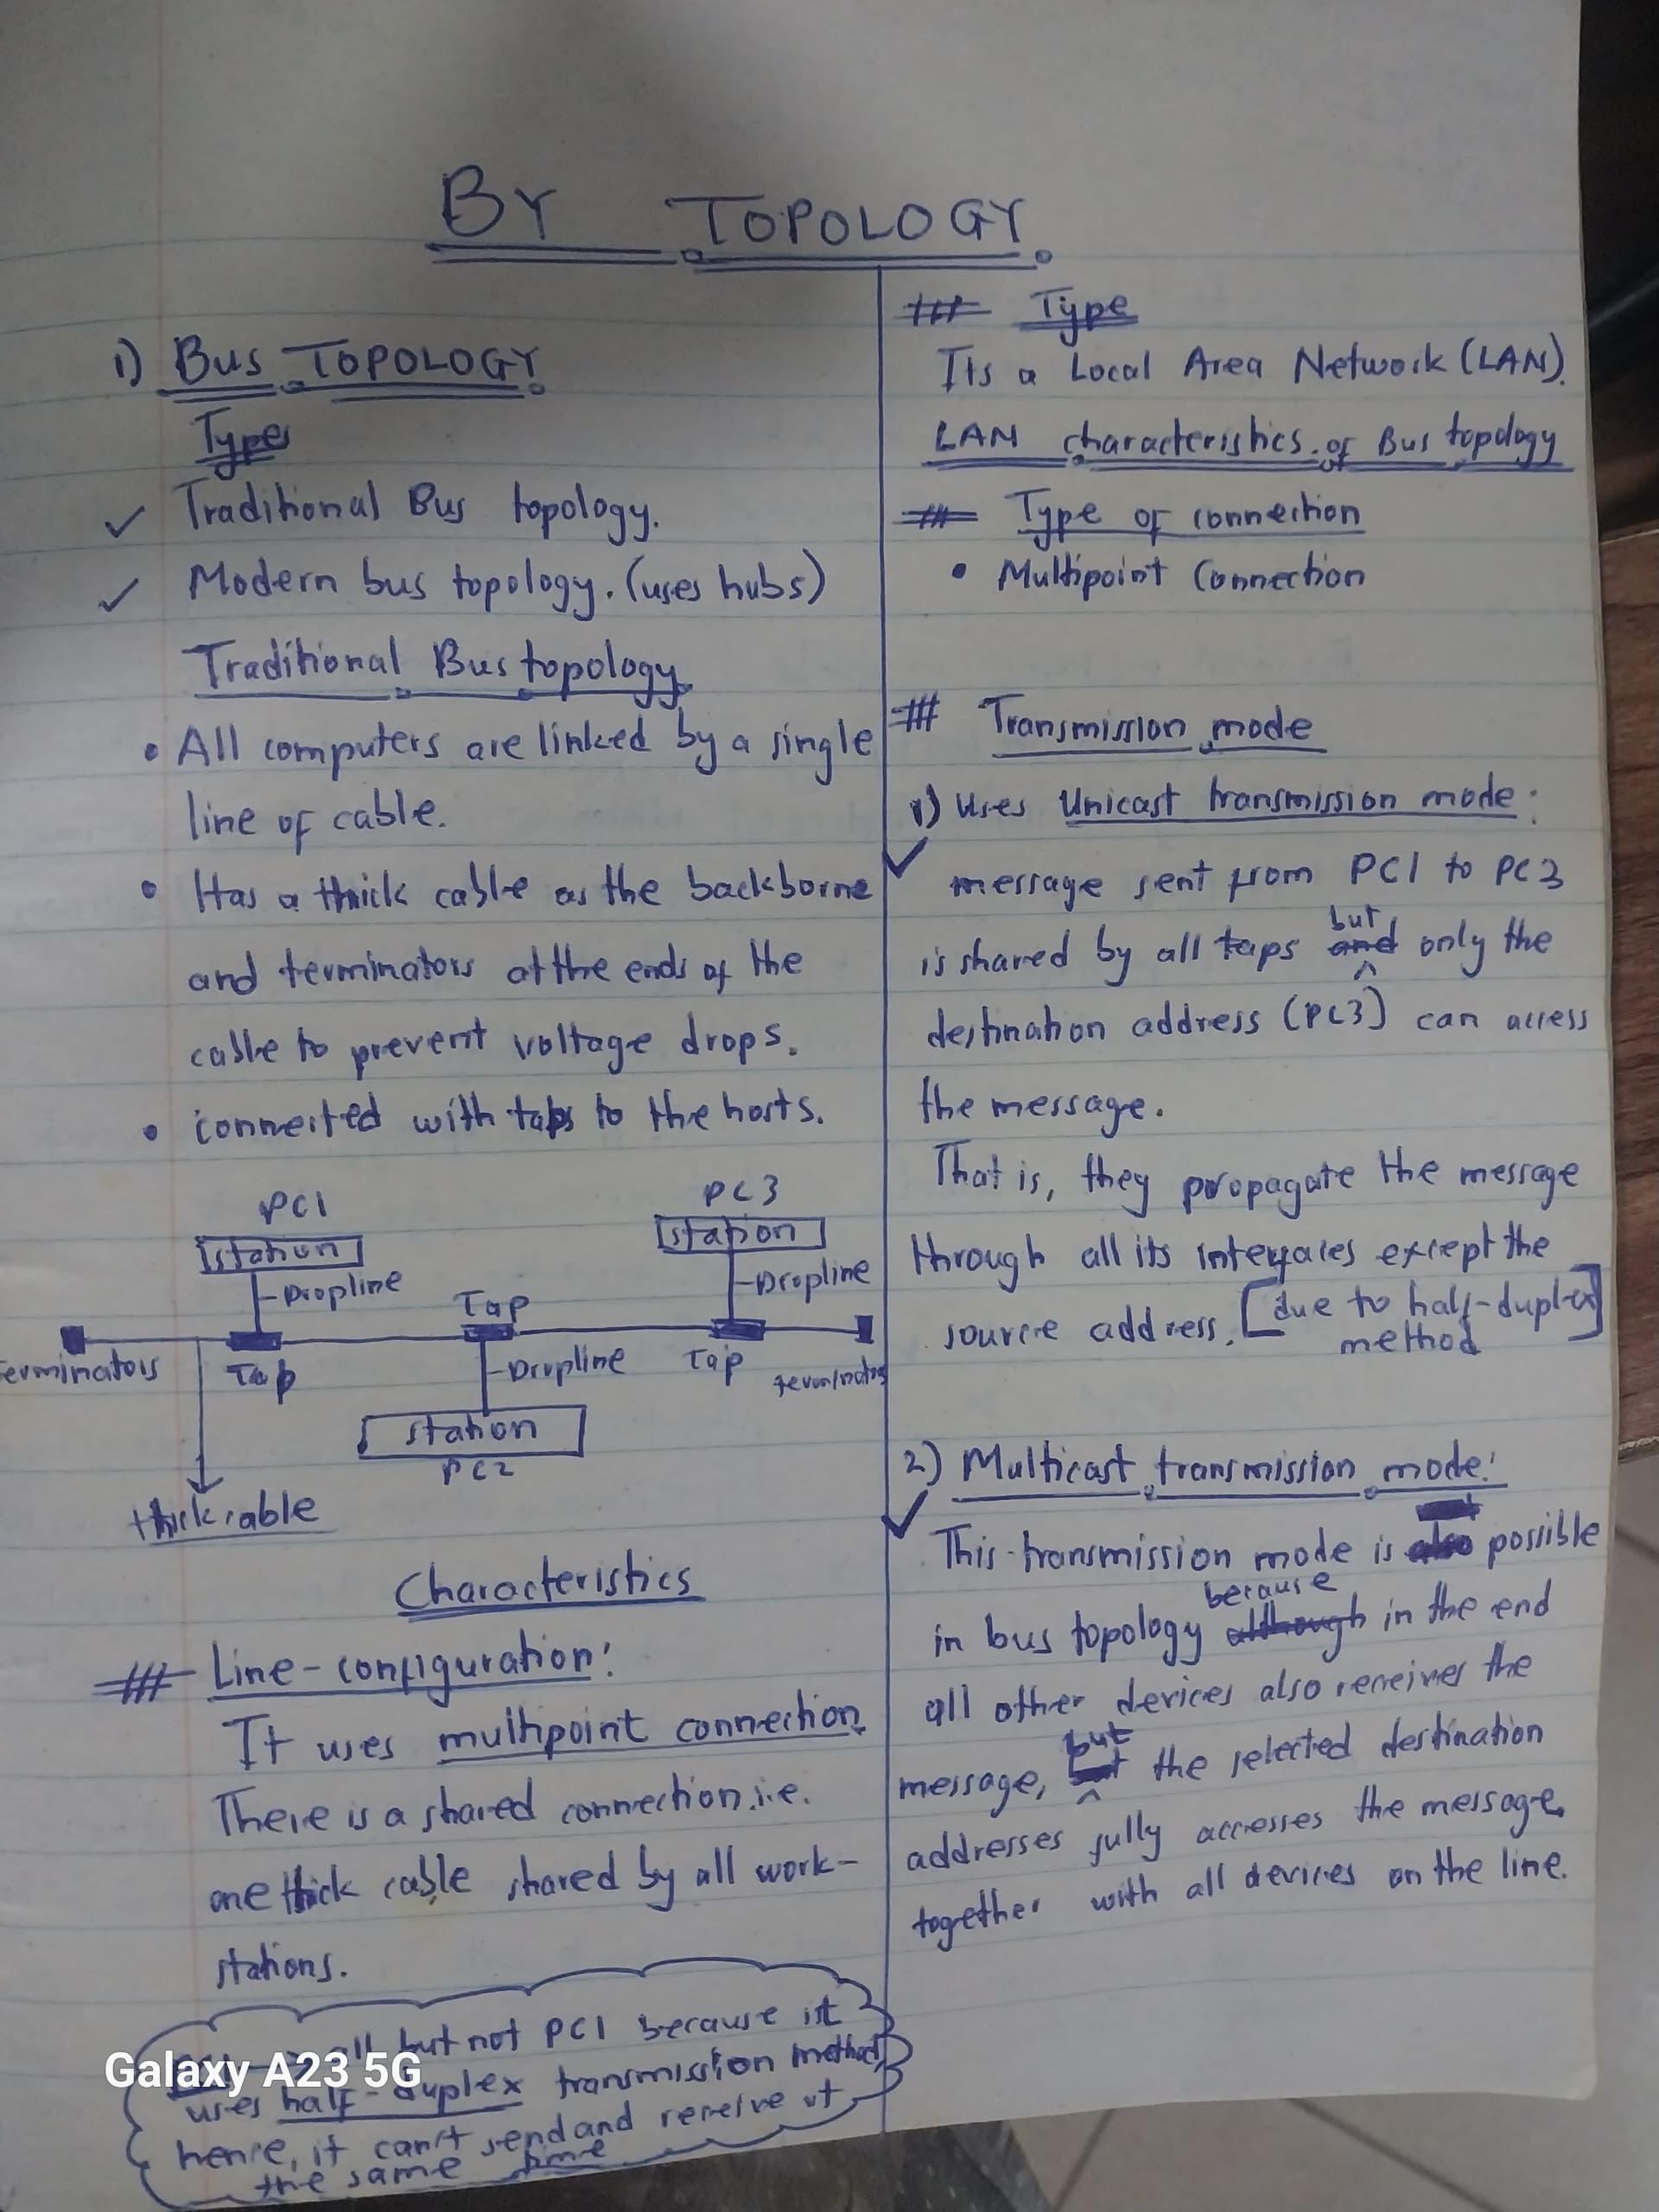 BY TOPOLOGY
1) BUS TOPOLOGY
Types
✓ Traditional Bus topology.
✓ Modern bus topology. (uses hubs)
Traditional Bus topology
• All computers are linked by a single
line of cable.
• Has a thick cable as the backborne
and terminators at the ends of the
cable to prevent voltage drops.
• connected with taps to the hosts.
PC1
station
Dropline
Tap
PC3
station
Dropline
Tap
Tap
Dropline
station
PC2
erminators
terminators
thick cable
Characteristics
# Line-configuration:
It uses multipoint connection.
There is a shared connection.i.e.
one thick cable shared by all work-
stations.
all but not PC1 because it
uses half-duplex transmission method
hence, it can't send and receive at
the same time
# Type
Its a Local Area Network (LAN).
LAN characteristics of Bus topology
# Type of connection
• Multipoint Connection
# Transmission mode
1) Uses Unicast transmission mode:
✓ message sent from PC1 to PC3
is shared by all taps but only the
destination address (PC3) can access
the message.
That is, they propagate the message
through all its interfaces except the
source address. [due to half-duplex
method]
2) Multicast transmission mode:
✓ This transmission mode is possible
in bus topology because in the end
all other devices also receives the
message, but the selected destination
addresses fully accesses the message
together with all devices on the line.
Galaxy A23 5G